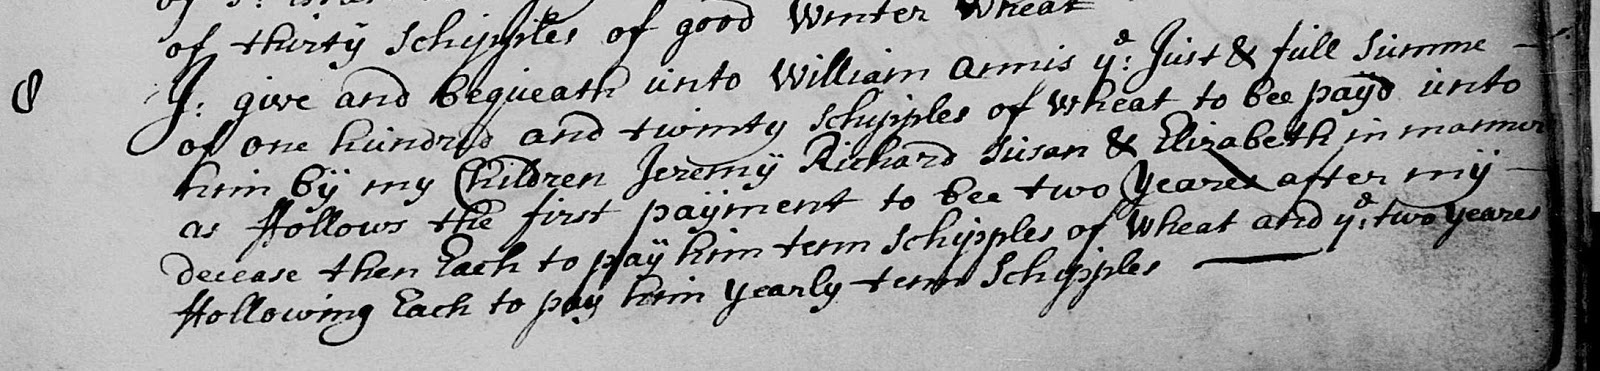 of thirty Schipples of good Winter Wheat
8
J: give and bequeath unto William Annis yᵉ: Just & full Summe —
of one hundred and twinty schipples of wheat to bee payd unto
him by my Children Jeremy Richard Susan & Elizabeth in manner
as ffollows the first payment to bee two yeares after my —
decease then Each to pay him tenn schipples of wheat and yᵉ: two yeares
ffollowing Each to pay him yearly tenn Schipples ———